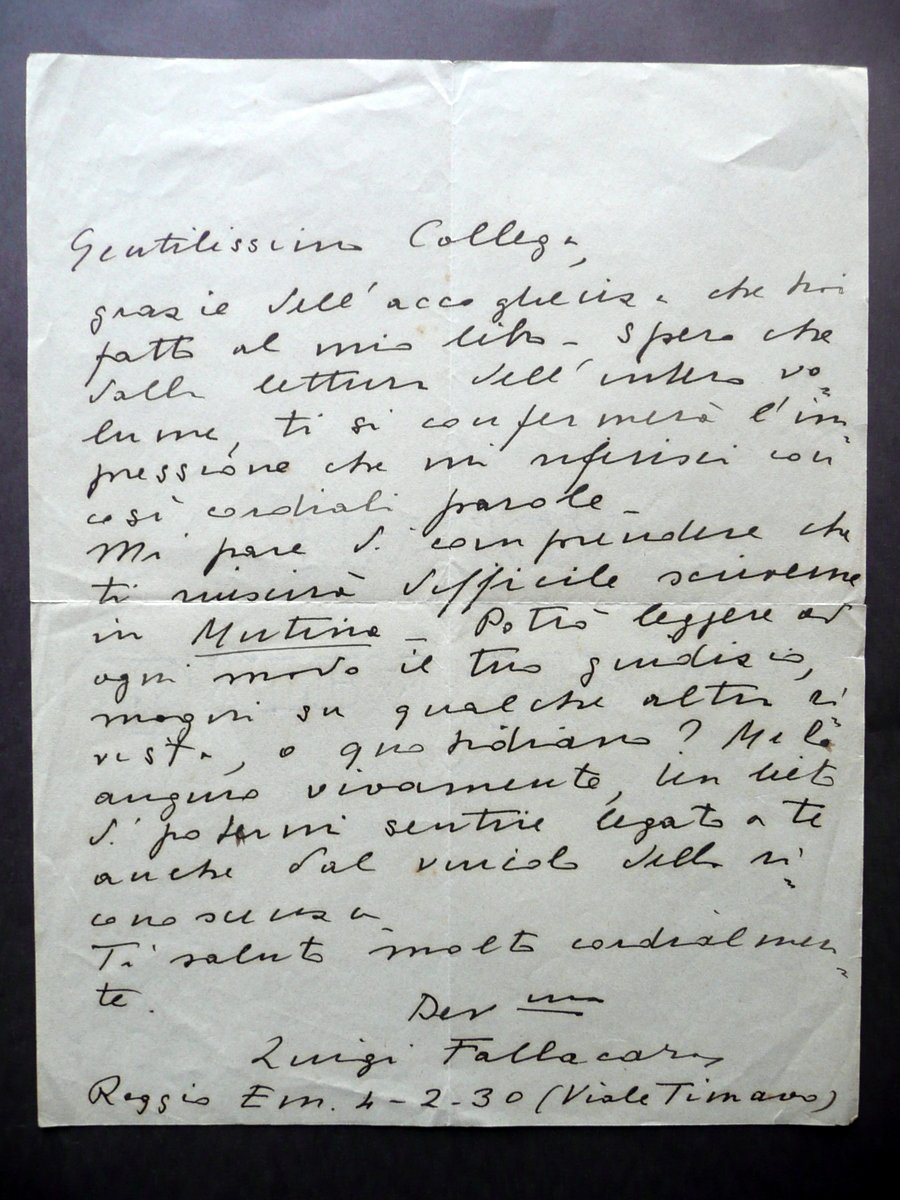 Gentilissimo Collega,
grazie dell'accoglienza che hai
fatto al mio libro – Spero che
dalla lettura dell'intero vo=
lume, ti si confermerà l'im=
pressione che mi riferisci con
così cordiali parole –
Mi pare di comprendere che
ti riuscirà difficile scriverne
in Mutina – Potrò leggere ad
ogni modo il tuo giudizio,
magari su qualche altra ri=
vista, o quotidiano? Me lo
auguro vivamente, lieto
di potermi sentire legato a te
anche dal vincolo della ri=
conoscenza
Ti saluto molto cordialmen=
te.
Dev mo
Luigi Fallacara
Reggio Em. 4-2-30 (Viale Timavo)